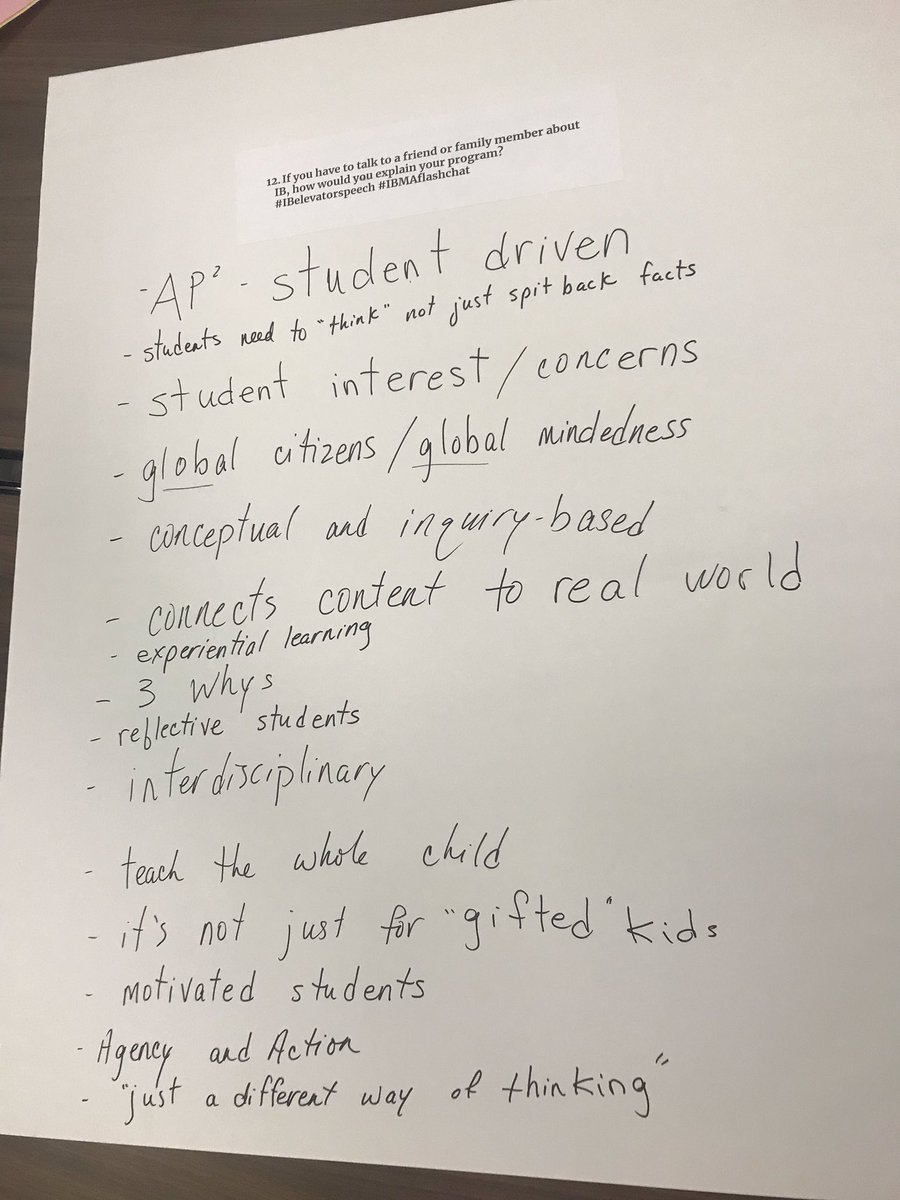 12. If you have to talk to a friend or family member about
IB, how would you explain your program?
#IBelevatorspeech #IBMAflashchat
- AP² - student driven
- students need to "think" not just spit back facts
- student interest / concerns
- global citizens / global mindedness
- conceptual and inquiry-based
- connects content to real world
- experiential learning
- 3 Whys
- reflective students
- interdisciplinary
- teach the whole child
- it's not just for "gifted" kids
- motivated students
- Agency and Action
- "just a different way of thinking"